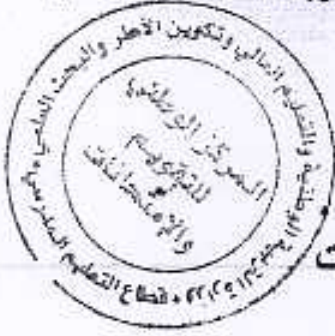 وزارة التربية الوطنية والتعليم العالي وتكوين الأطر والبحث العلمي
قطاع التعليم المدرسي
المركز الوطني
للتقويم
والامتحانات